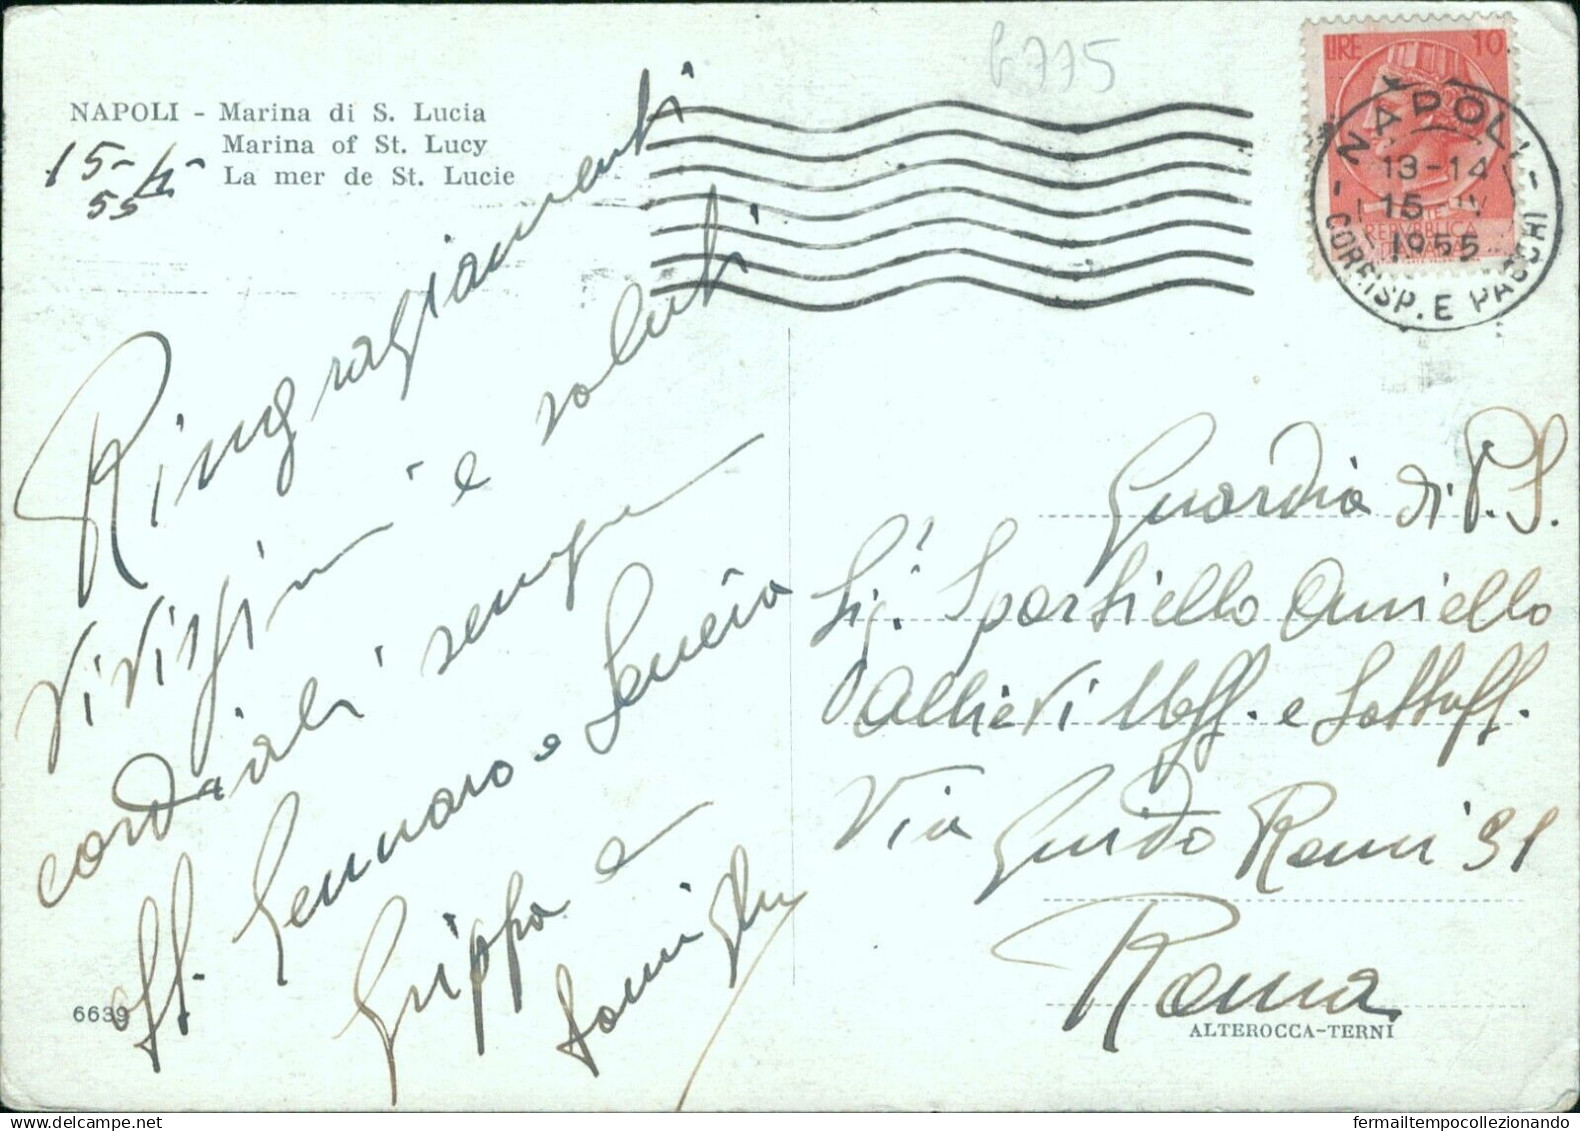 b775
NAPOLI - Marina di S. Lucia
Marina of St. Lucy
La mer de St. Lucie
15-4-
55
LIRE 10
REPVBBLICA
ITALIANA
NAPOLI
13-14
15 IV
1955
CORRISP. E PACCHI
Ringragiamenti
vivissimi e saluti
cordiali sempre
aff. Gennaro e
Grippa e
famiglia
Guardia di P.S.
Sig. Sportiello Aniello
Allievi Uff. e Sottuff.
Via Guido Reni 31
Roma
6639
ALTEROCCA-TERNI
fermailtempocollezionando